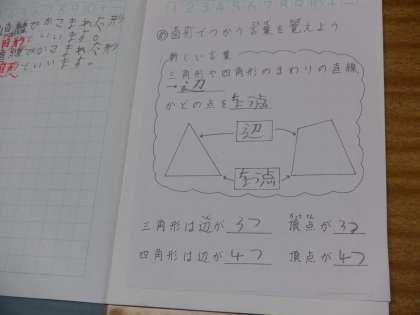 直線でかこまれた形
といいます。
直線でかこまれた形
といいます。
図形でつかう言葉を覚えよう
新しい言葉
三角形や四角形のまわりの直線
→辺
かどの点を ちょう点
辺
ちょう点
三角形は辺が 3つ 頂点が 3つ
四角形は辺が 4つ 頂点が 4つ